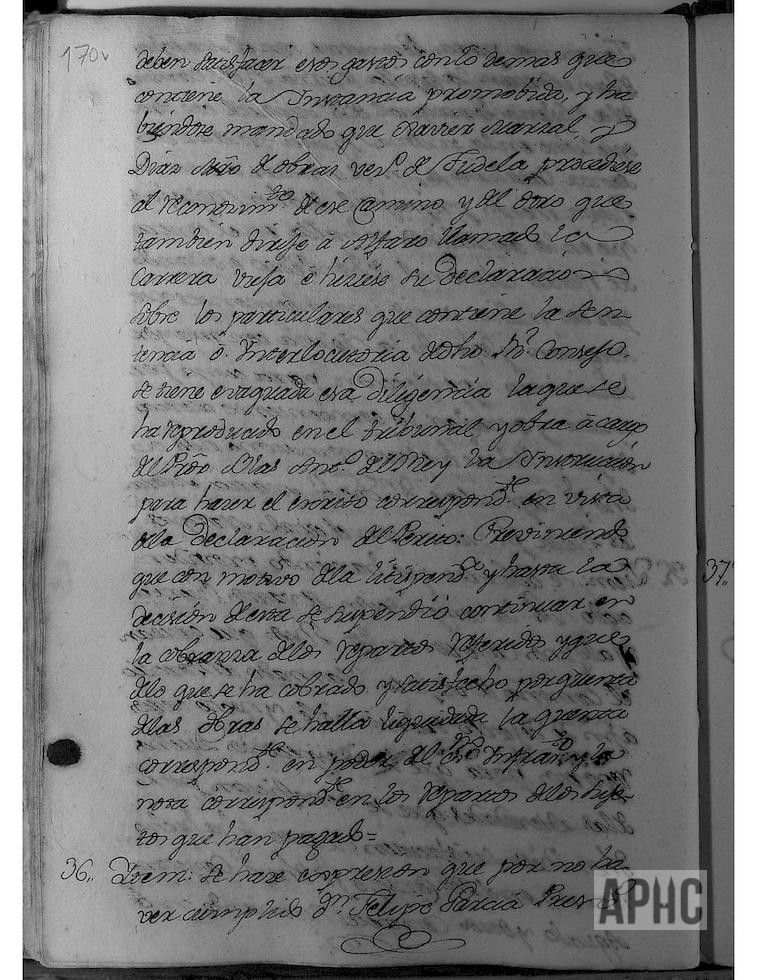 170v
deben satisfacer esos gastos con lo demas que
contiene la Instancia promobida, y ha
biendose mandado que Xavier Marzal, y
Diaz Mrō de obras vezº. de Tudela procediese
al reconozimto. de ese Camino y del otro que
tambien dirije a Alfaro llamado la
Carrera vieja è hiziese su declaracion
sobre los particulares que contiene la Sen-
tencia ò Interlocutoria de dho Rl. Consejo.
se tiene evaquada esa Diligencia la que se
ha reproducido en el tribunal y obra à cargo
del Blas Antº. del Rey la Instruccion
para hazer el escrito correspondte. en vista
dela Declaracion del Perito: Previniendo
que con motivo dela litispenda. y hasta la
decision de esta se suspendiò continuar en
la cobranza delos repartos referidos y que
delo que se ha cobrado y satisfecho por quenta
delas obras se halla liquidada la quenta
correspondte. en poder del Essno. Infrascto. y la
nota correspondte. en los repartos delos suje-
tos que han pagado=
36,, Itvem: Se haze expresion que por no ha
ver cumplido Dn. Felipe Garcia Presvo.
37,,
APHC